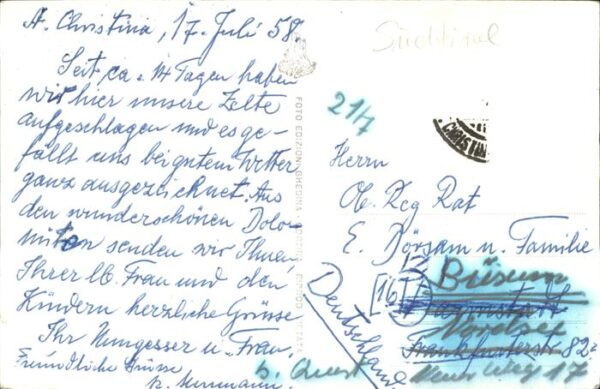 St. Christina, 17. Juli 58.
Seit ca. 14 Tagen haben
wir hier unsere Zelte
aufgeschlagen und es ge-
fällt uns bei gutem Wetter
ganz ausgezeichnet. Aus
den wunderschönen Dolo-
miten senden wir Ihnen,
Ihrer lb. Frau und den
Kindern herzliche Grüsse
Ihr Nungesser u. Frau.
Freundliche Grüsse
Südtirol
21/7
FOTO EDIZIONI GHEDINA
Herrn
Ob. Reg Rat
E. Dörsam u. Familie
(16) Darmstadt
Frankfurterstr. 82
Deutschland
Büsum
Nordsee
17